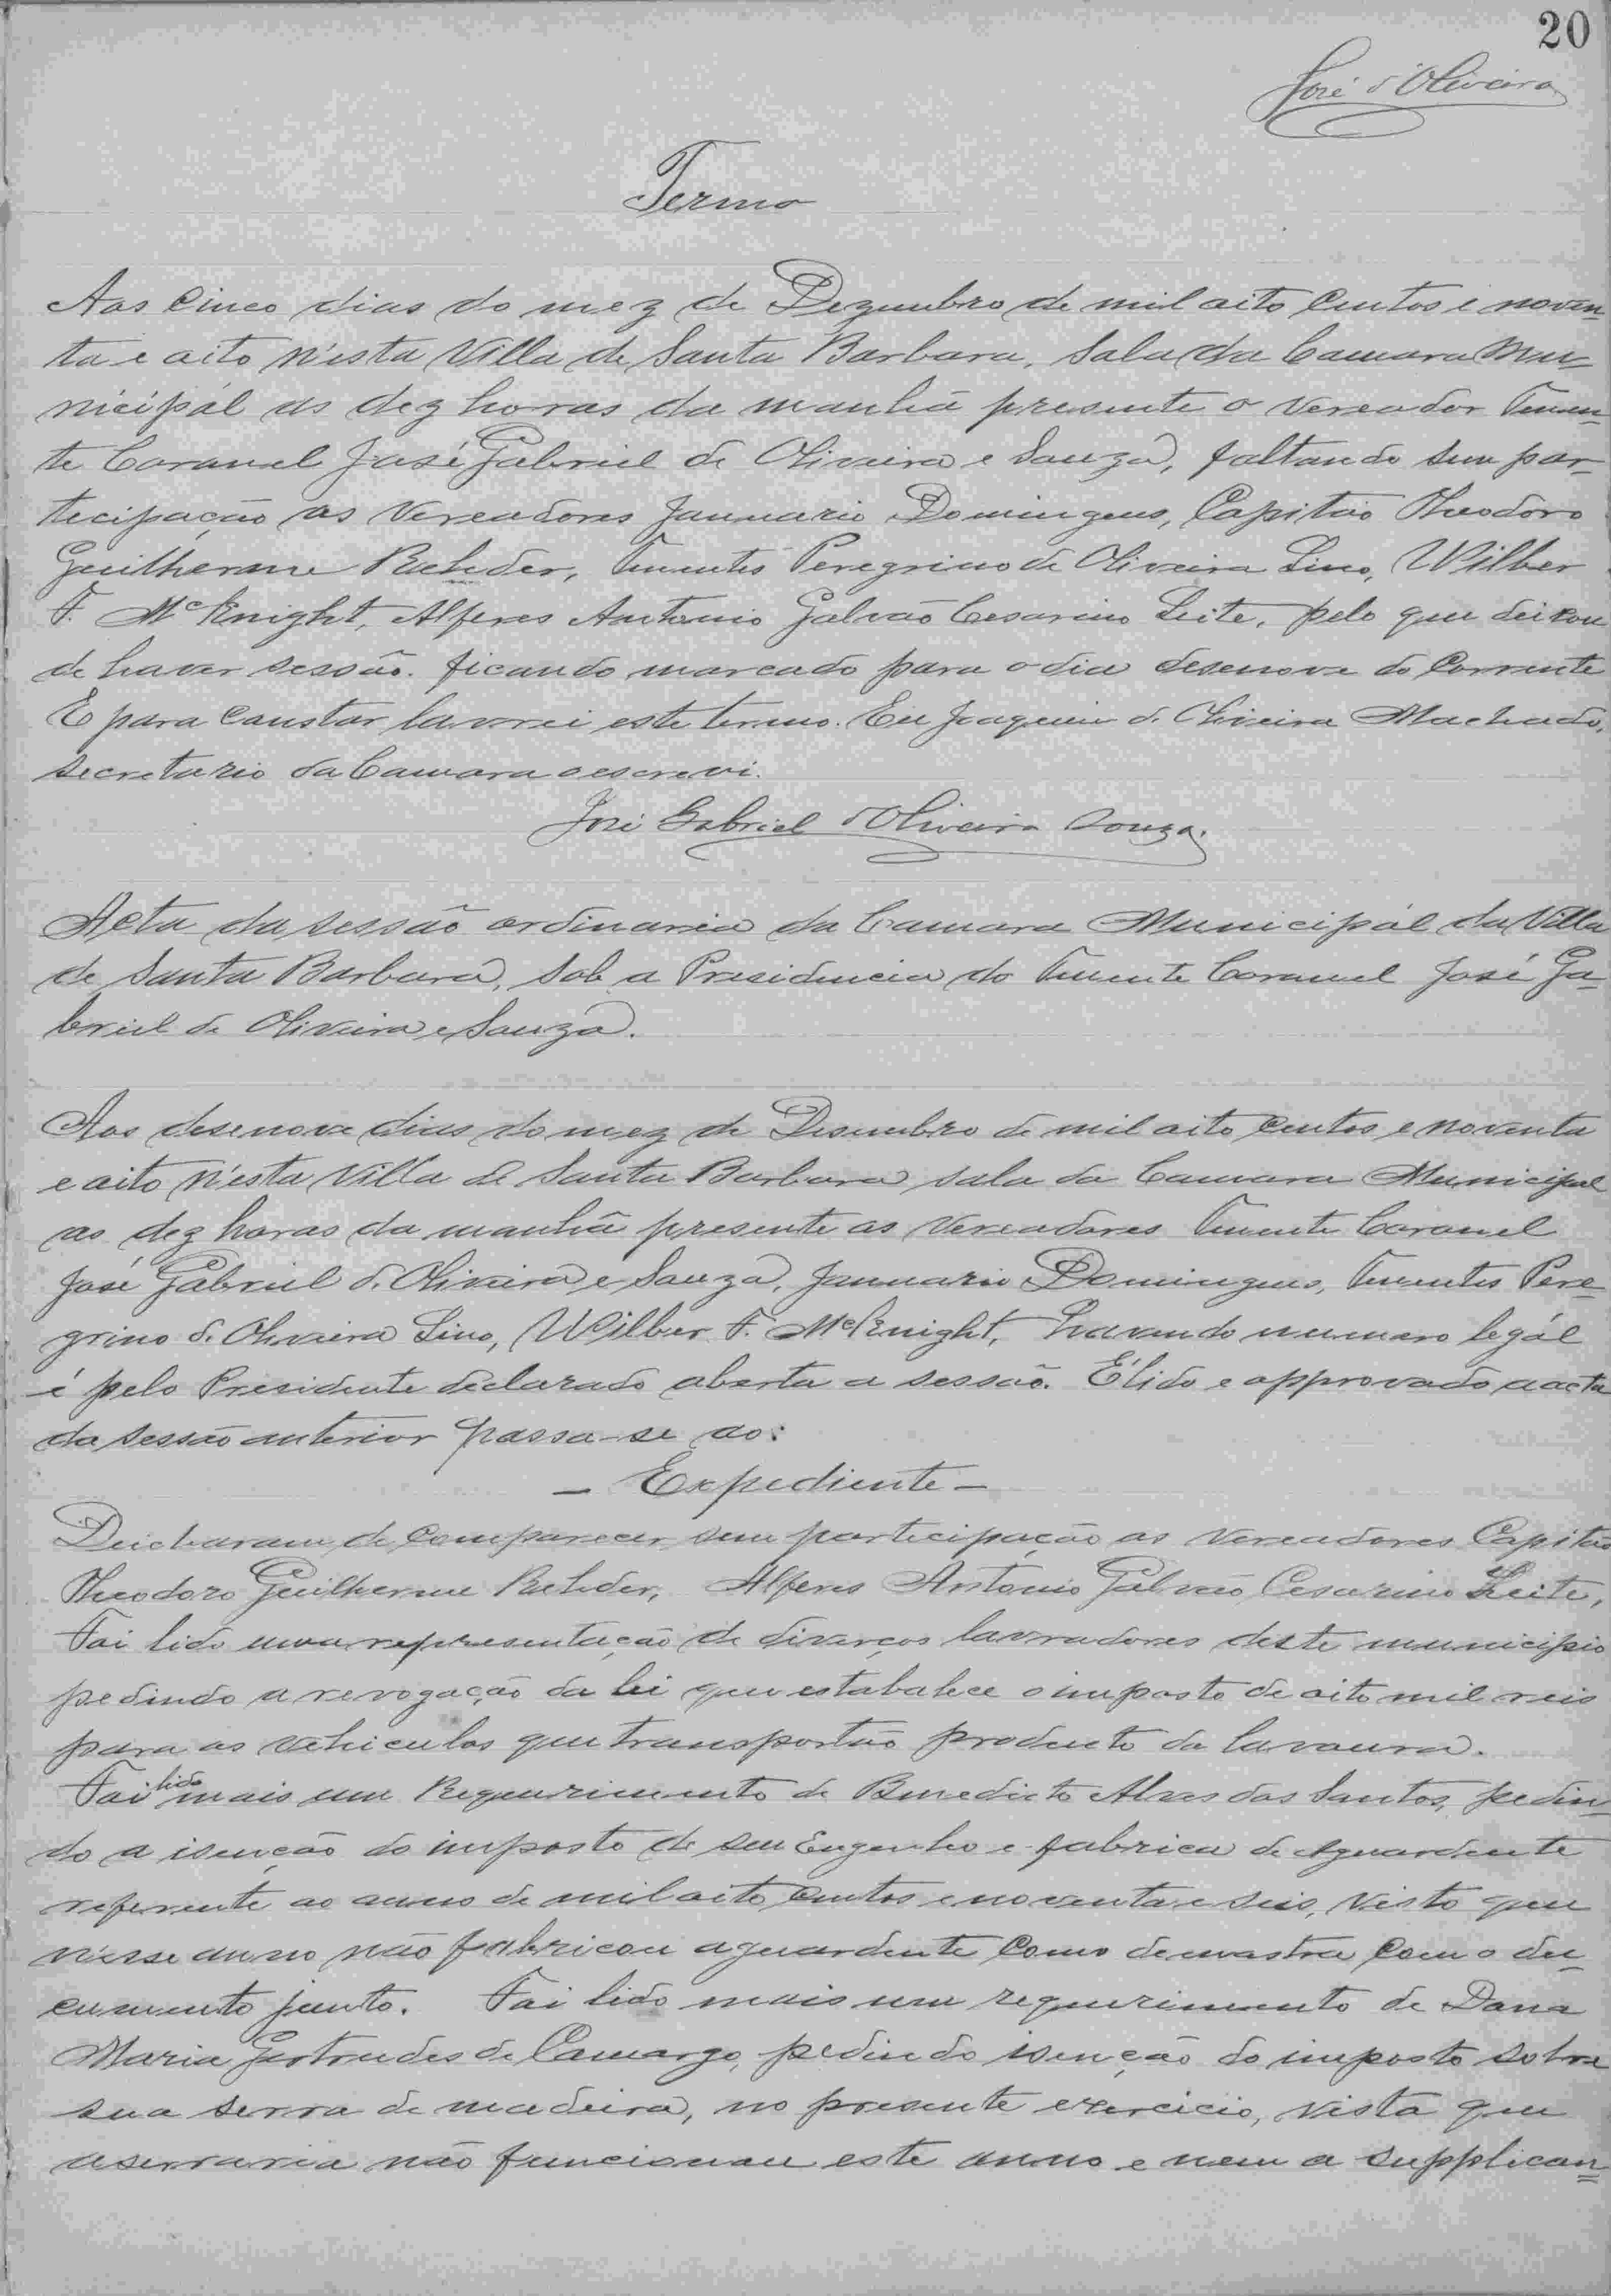 20
José d'Oliveira
Termo
Aos Cinco dias do mez de Dezembro de mil oito Centos e noven-
ta e oito n'esta Villa de Santa Barbara, Sala da Camara Mu-
nicipál as dez horas da manhã presente o Vereador Tenen-
te Coronel José Gabriel de Oliveira e Souza, faltando sem par-
tecipação os Vereadores Januario Domingues, Capitão Theodoro
Guilherme Rehder, Tenentes Peregrino de Oliveira Lino, Wilber
F. McKnight, Alferes Antonio Galvão Cesarino Leite, pelo que deixou
de haver sessão. ficando marcado para o dia desenove do Corrente
E para Constar lavrei este termo. Eu Joaquim d. Oliveira Machado,
Secretario da Camara o escrevi.
José Gabriel d'Oliveira Souza.
Acta da Sessão ordinaria da Camara Municipál da Villa
de Santa Barbara, Sob a Presidencia do Tenente Coronel José Ga-
briel de Oliveira e Souza.
Aos desenove dias do mez de Desembro de mil oito Centos e noventa
e oito n'esta Villa de Santa Barbara sala da Camara Municipal
as dez horas da manhã presente os Vereadores Tenente Coronel
José Gabriel d. Oliveira e Souza, Januario Domingues, Tenentes Pere-
grino d. Oliveira Lino, Wilber F. McKnight, Havendo numero legál
é pelo Presidente declarado aberta a sessão. É lido e approvado a acta
da Sessão anterior passa-se ao:
- Expediente -
Deicharam de Comparecer sem participação os Vereadores Capitão
Theodoro Guilherme Rehder, Alferes Antonio Galvão Cesarino Leite,
Foi lido uma representação de diverços lavradores deste municipio
pedindo a revogação da lei que estabalece o imposto de oito mil reis
para os vehiculos que transportão producto da lavoura.
Foi lido mais um Requerimento de Benedicto Alves dos Santos, pedin-
do a isenção do imposto de seu Engenho e fabrica de Aguardente
referente ao anno de mil oito Centos e noventa e seis, Visto que
n'esse anno não fabricou aguardente Como demostra Com o du-
cumento junto. Foi lido mais um requerimento de Dona
Maria Gertrudes de Camargo, pedindo isenção do imposto sobre
sua serra de madeira, no presente exercicio, Vista que
a serraria não funcionou este anno e nem a Supplican-